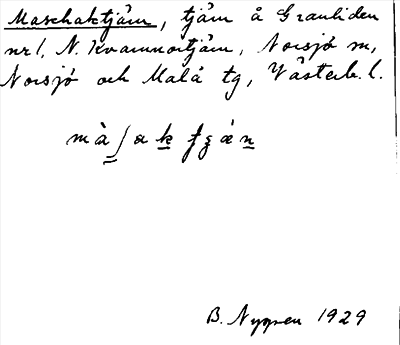 Maschaktjärn, tjärn å Granliden
nr 1, N. Kvarnnortjärn, Norsjö sn,
Norsjö och Malå tg, Västerb. l.
B. Nygren 1929